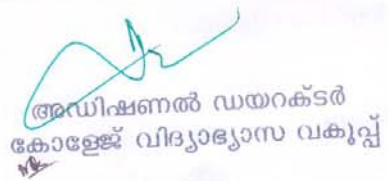 അഡിഷണൽ ഡയറക്ടർ
കോളേജ് വിദ്യാഭ്യാസ വകുപ്പ്